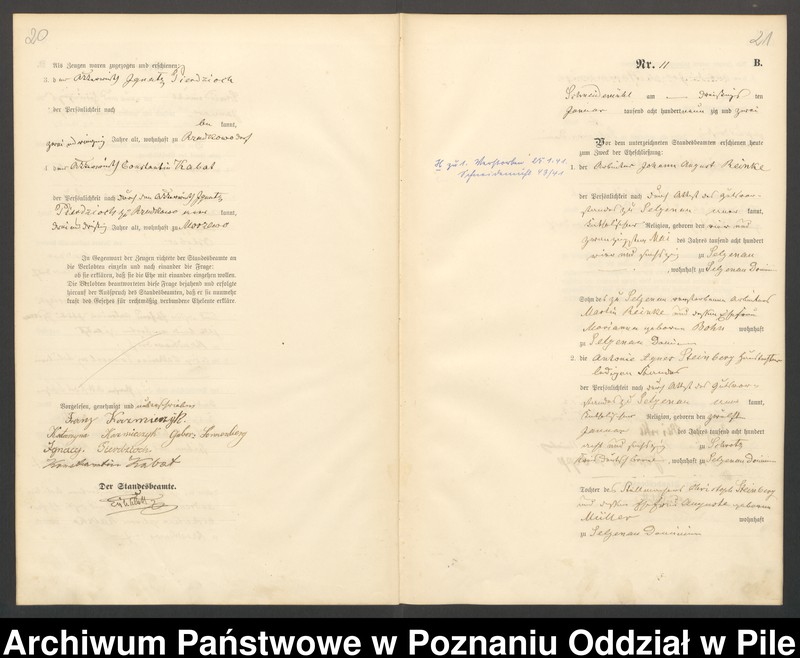 20
Als Zeugen waren zugezogen und erschienen:
3. der Ackerwirth Ignatz Pierdzioch
der Persönlichkeit nach
kannt,
zwei und vierzig Jahre alt, wohnhaft zu
4. der Ackerwirth Constantin Kabat
der Persönlichkeit nach durch den Ackerwirth Ignatz
Pierdzioch zu kannt,
Jahre alt, wohnhaft zu Morzewo
In Gegenwart der Zeugen richtete der Standesbeamte an
die Verlobten einzeln und nach einander die Frage:
ob sie erklären, daß sie die Ehe mit einander eingehen wollen.
Die Verlobten beantworteten diese Frage bejahend und erfolgte
hierauf der Ausspruch des Standesbeamten, daß er sie nunmehr
kraft des Gesetzes für rechtmäßig verbundene Eheleute erkläre.
Vorgelesen, genehmigt und unterschrieben
Franz Kaczmierczyk.
Katarzyna
Ignacy
Konstantin Kabat
Der Standesbeamte.
21
Nr. 11
B.
Schneidemühl am dreißigs ten
Januar tausend acht hundert neun zig und zwei
Vor dem unterzeichneten Standesbeamten erschienen heute
zum Zweck der Eheschließung:
1. der Arbeiter Johann August Reinke
der Persönlichkeit nach durch Attest des Gutsvor-
standes zu Selgenau kannt,
katholischer Religion, geboren den vier und
zwanzigsten Mai des Jahres tausend acht hundert
vier und sechszig zu Selgenau
, wohnhaft zu Selgenau Dom
Sohn des zu Selgenau verstorbenen Arbeiters
Martin Reinke und dessen Ehefrau
Marianna geborene Bohn wohnhaft
zu Selgenau Dominium
2. die Antonie Agnes Steinberg
ledigen Standes
der Persönlichkeit nach durch Attest des Gutsvor-
standes zu Selgenau kannt,
katholischer Religion, geboren den zwölften
Januar des Jahres tausend acht hundert
acht und sechszig zu Schrotz
Kreis Deutsch Krone, wohnhaft zu Selgenau Dominium
Tochter des Christoph Steinberg
und dessen Ehefrau Auguste geborene
Müller wohnhaft
zu Selgenau Dominium
H zu 1. Verstorben 25.1.41
Schneidemühl 43/41
Archiwum Państwowe w Poznaniu Oddział w Pile